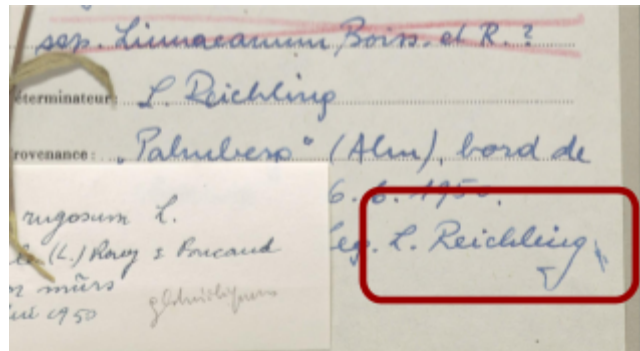 ssp. Linnaeanum Boiss. et R. ?
éterminateur: L. Reichling
rovenance: "Palmberg" (Ahn), bord de
6. 6. 1950.
leg. L. Reichling
rugosum L.
(L.) Rouy & Foucaud
mûrs
1950